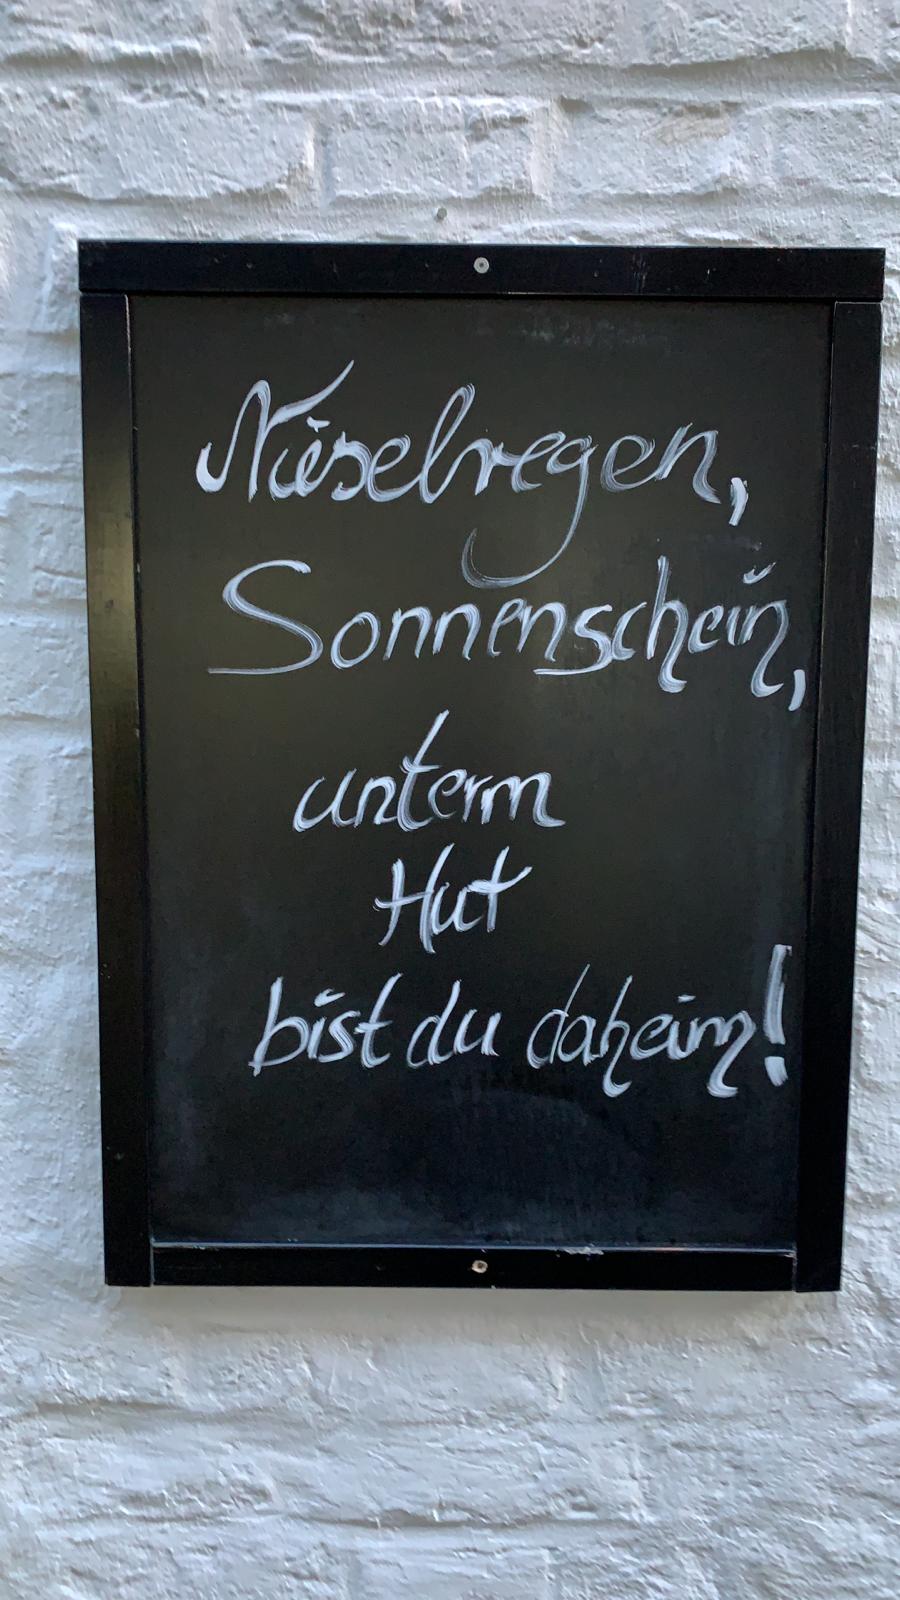 Nieselregen,
Sonnenschein,
unterm
Hut
bist du daheim!